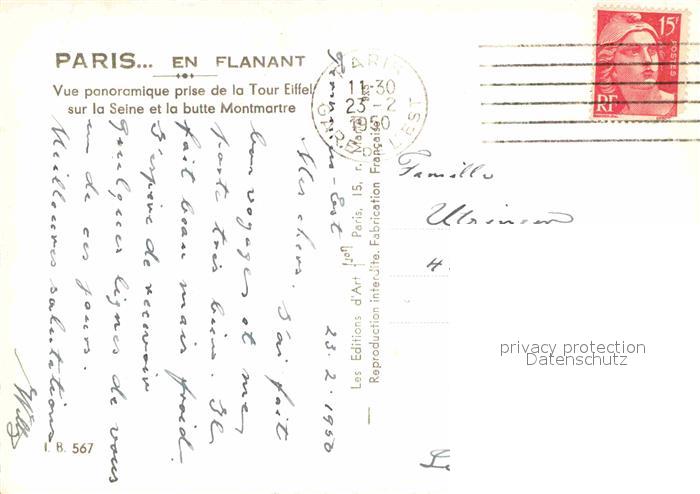 PARIS... EN FLANANT
Vue panoramique prise de la Tour Eiffel
sur la Seine et la butte Montmartre
PARIS
11-30
23-2
1950
GARE DE L'EST
15F
POSTES
RF
Les Editions d'Art Paris, 15, r.
Reproduction interdite. Fabrication Française
Est 23.2.1950
Mes chers. J'ai fait
bon voyage et me
porte très bien. Il
fait beau mais froid.
J'espère de recevoir
quelques lignes de vous
un de ces jours.
Meilleures salutations
Willy
Famille
4
privacy protection
Datenschutz
I. B. 567